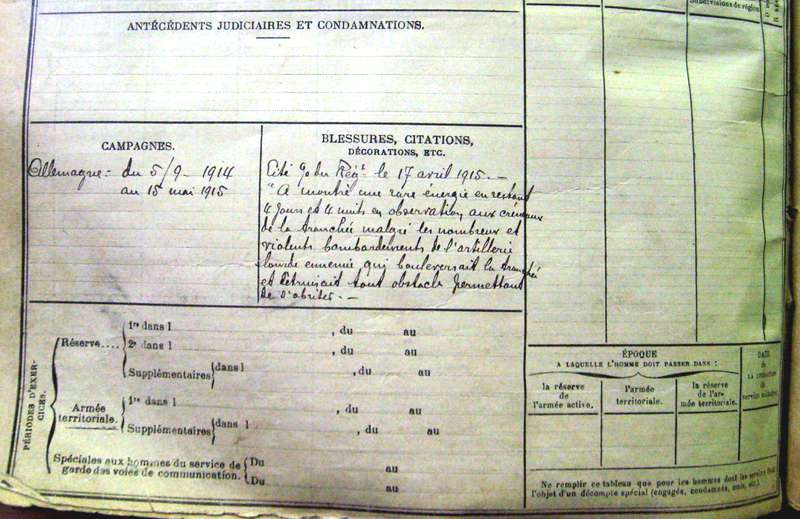 Subdivisions de région
ANTÉCÉDENTS JUDICIAIRES ET CONDAMNATIONS.
CAMPAGNES.
Allemagne - du 5/9 - 1914
au 15 mai 1915
BLESSURES, CITATIONS,
DÉCORATIONS, ETC.
Cité du Régt le 17 avril 1915. -
"A montré une rare énergie en restant
4 jours et 4 nuits en observation aux créneaux
de la tranchée malgré les nombreux et
violents bombardements de l'artillerie
lourde ennemie qui bouleversait la tranchée
et détruisait tout obstacle permettant
de s'abriter. -
PÉRIODES D'EXERCICES.
Réserve....
1re dans l , du au
2e dans l , du au
Supplémentaires dans l , du au
Armée
territoriale.
1re dans l , du au
Supplémentaires dans l , du au
Spéciales aux hommes du service de
garde des voies de communication.
Du au
Du au
ÉPOQUE
A LAQUELLE L'HOMME DOIT PASSER DANS :
la réserve
de l'armée active.
l'armée
territoriale.
la réserve
de l'ar-
mée territoriale.
DATE
de
LA LIBÉRATION
du
service militaire.
Ne remplir ce tableau que pour les hommes dont les services font
l'objet d'un décompte spécial (engagés, condamnés, omis, etc.)